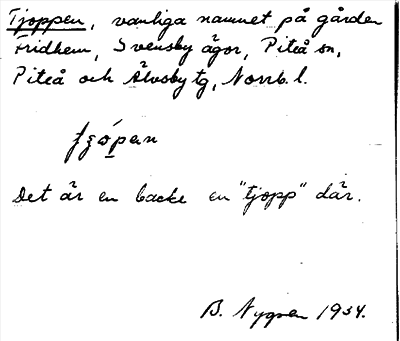 Tjoppen, vanliga namnet på gården
Fridhem, Svensby ägor, Piteå sn,
Piteå och Älvsby tg, Norrb. l.
Det är en backe en "tjopp" där.
B. Nygren 1934.